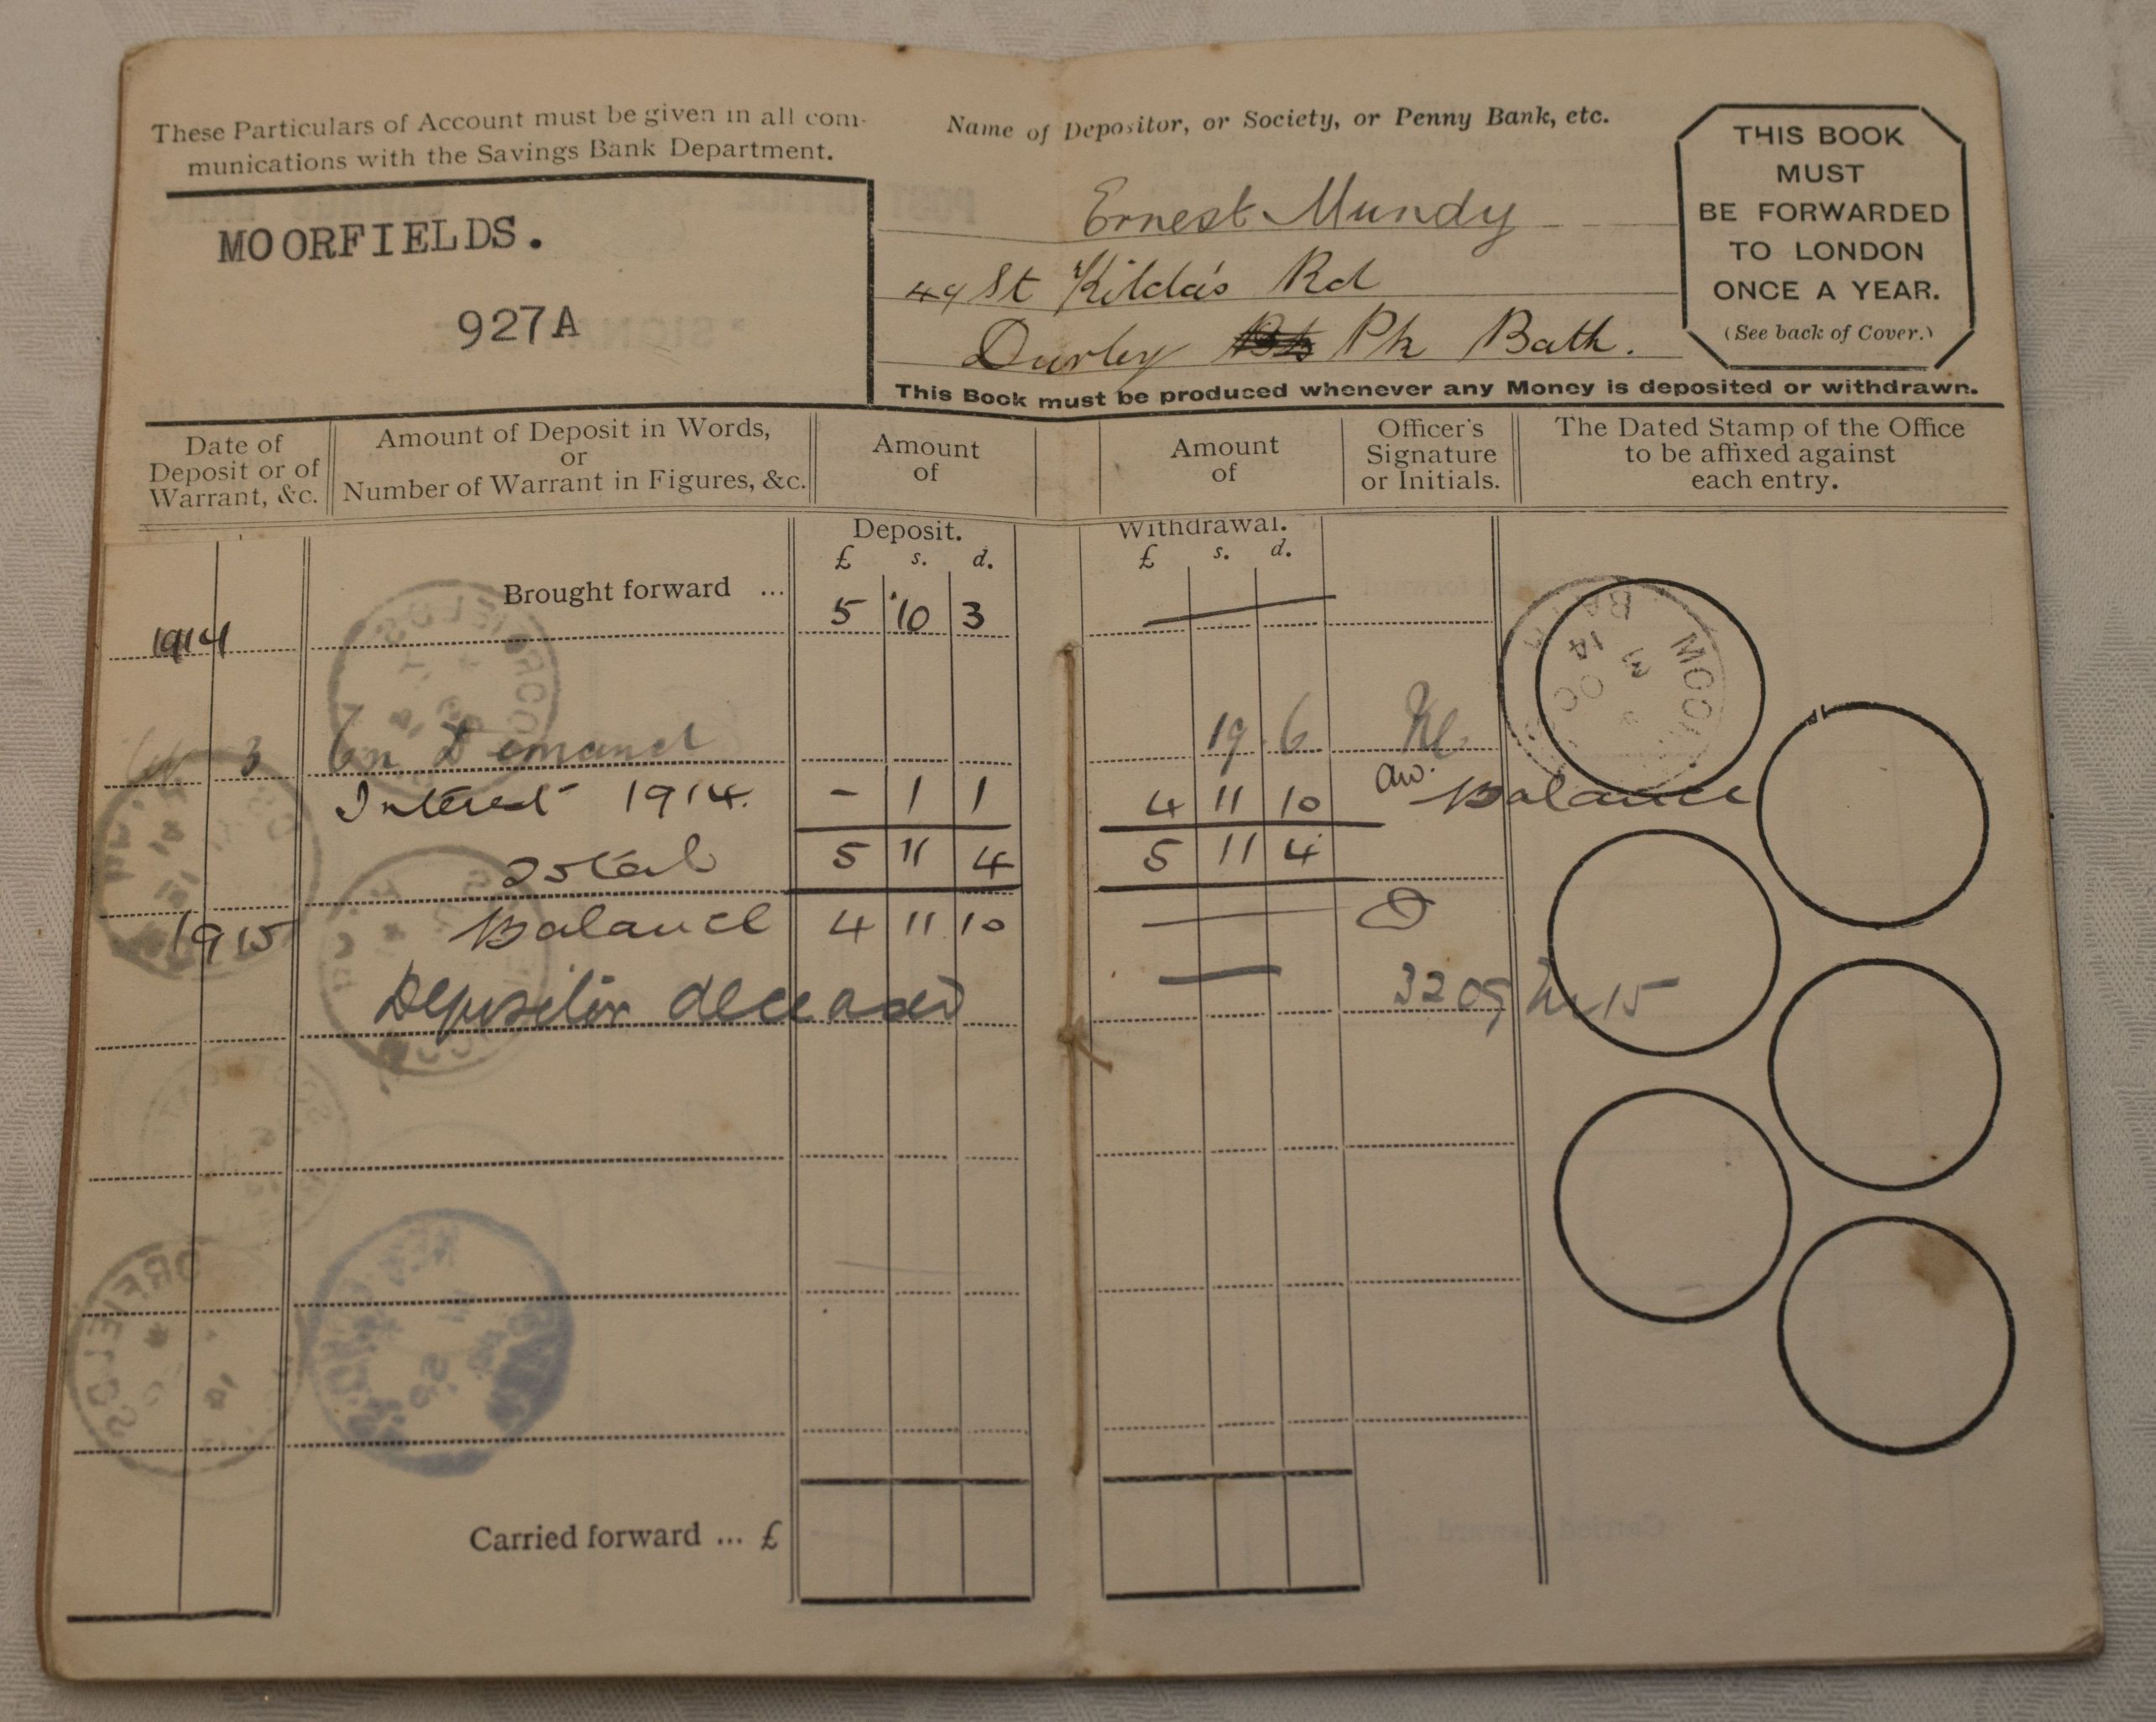 These Particulars of Account must be given in all com-
munications with the Savings Bank Department.
MOORFIELDS.
927A
Name of Depositor, or Society, or Penny Bank, etc.
Ernest Mundy
49 St Kilda's Rd
Durley Pk Bath.
THIS BOOK
MUST
BE FORWARDED
TO LONDON
ONCE A YEAR.
(See back of Cover.)
This Book must be produced whenever any Money is deposited or withdrawn.
Date of
Deposit or of
Warrant, &c.
Amount of Deposit in Words,
or
Number of Warrant in Figures, &c.
Amount
of
Deposit.
£ s. d.
Amount
of
Withdrawal.
£ s. d.
Officer's
Signature
or Initials.
The Dated Stamp of the Office
to be affixed against
each entry.
Brought forward ... 5 10 3
1914
3 On Demand 19 6
Interest 1914. – 1 1 4 11 10 Balance
Total 5 11 4 5 11 4
1915 Balance 4 11 10
Depositor deceased 3209 15
Carried forward ... £